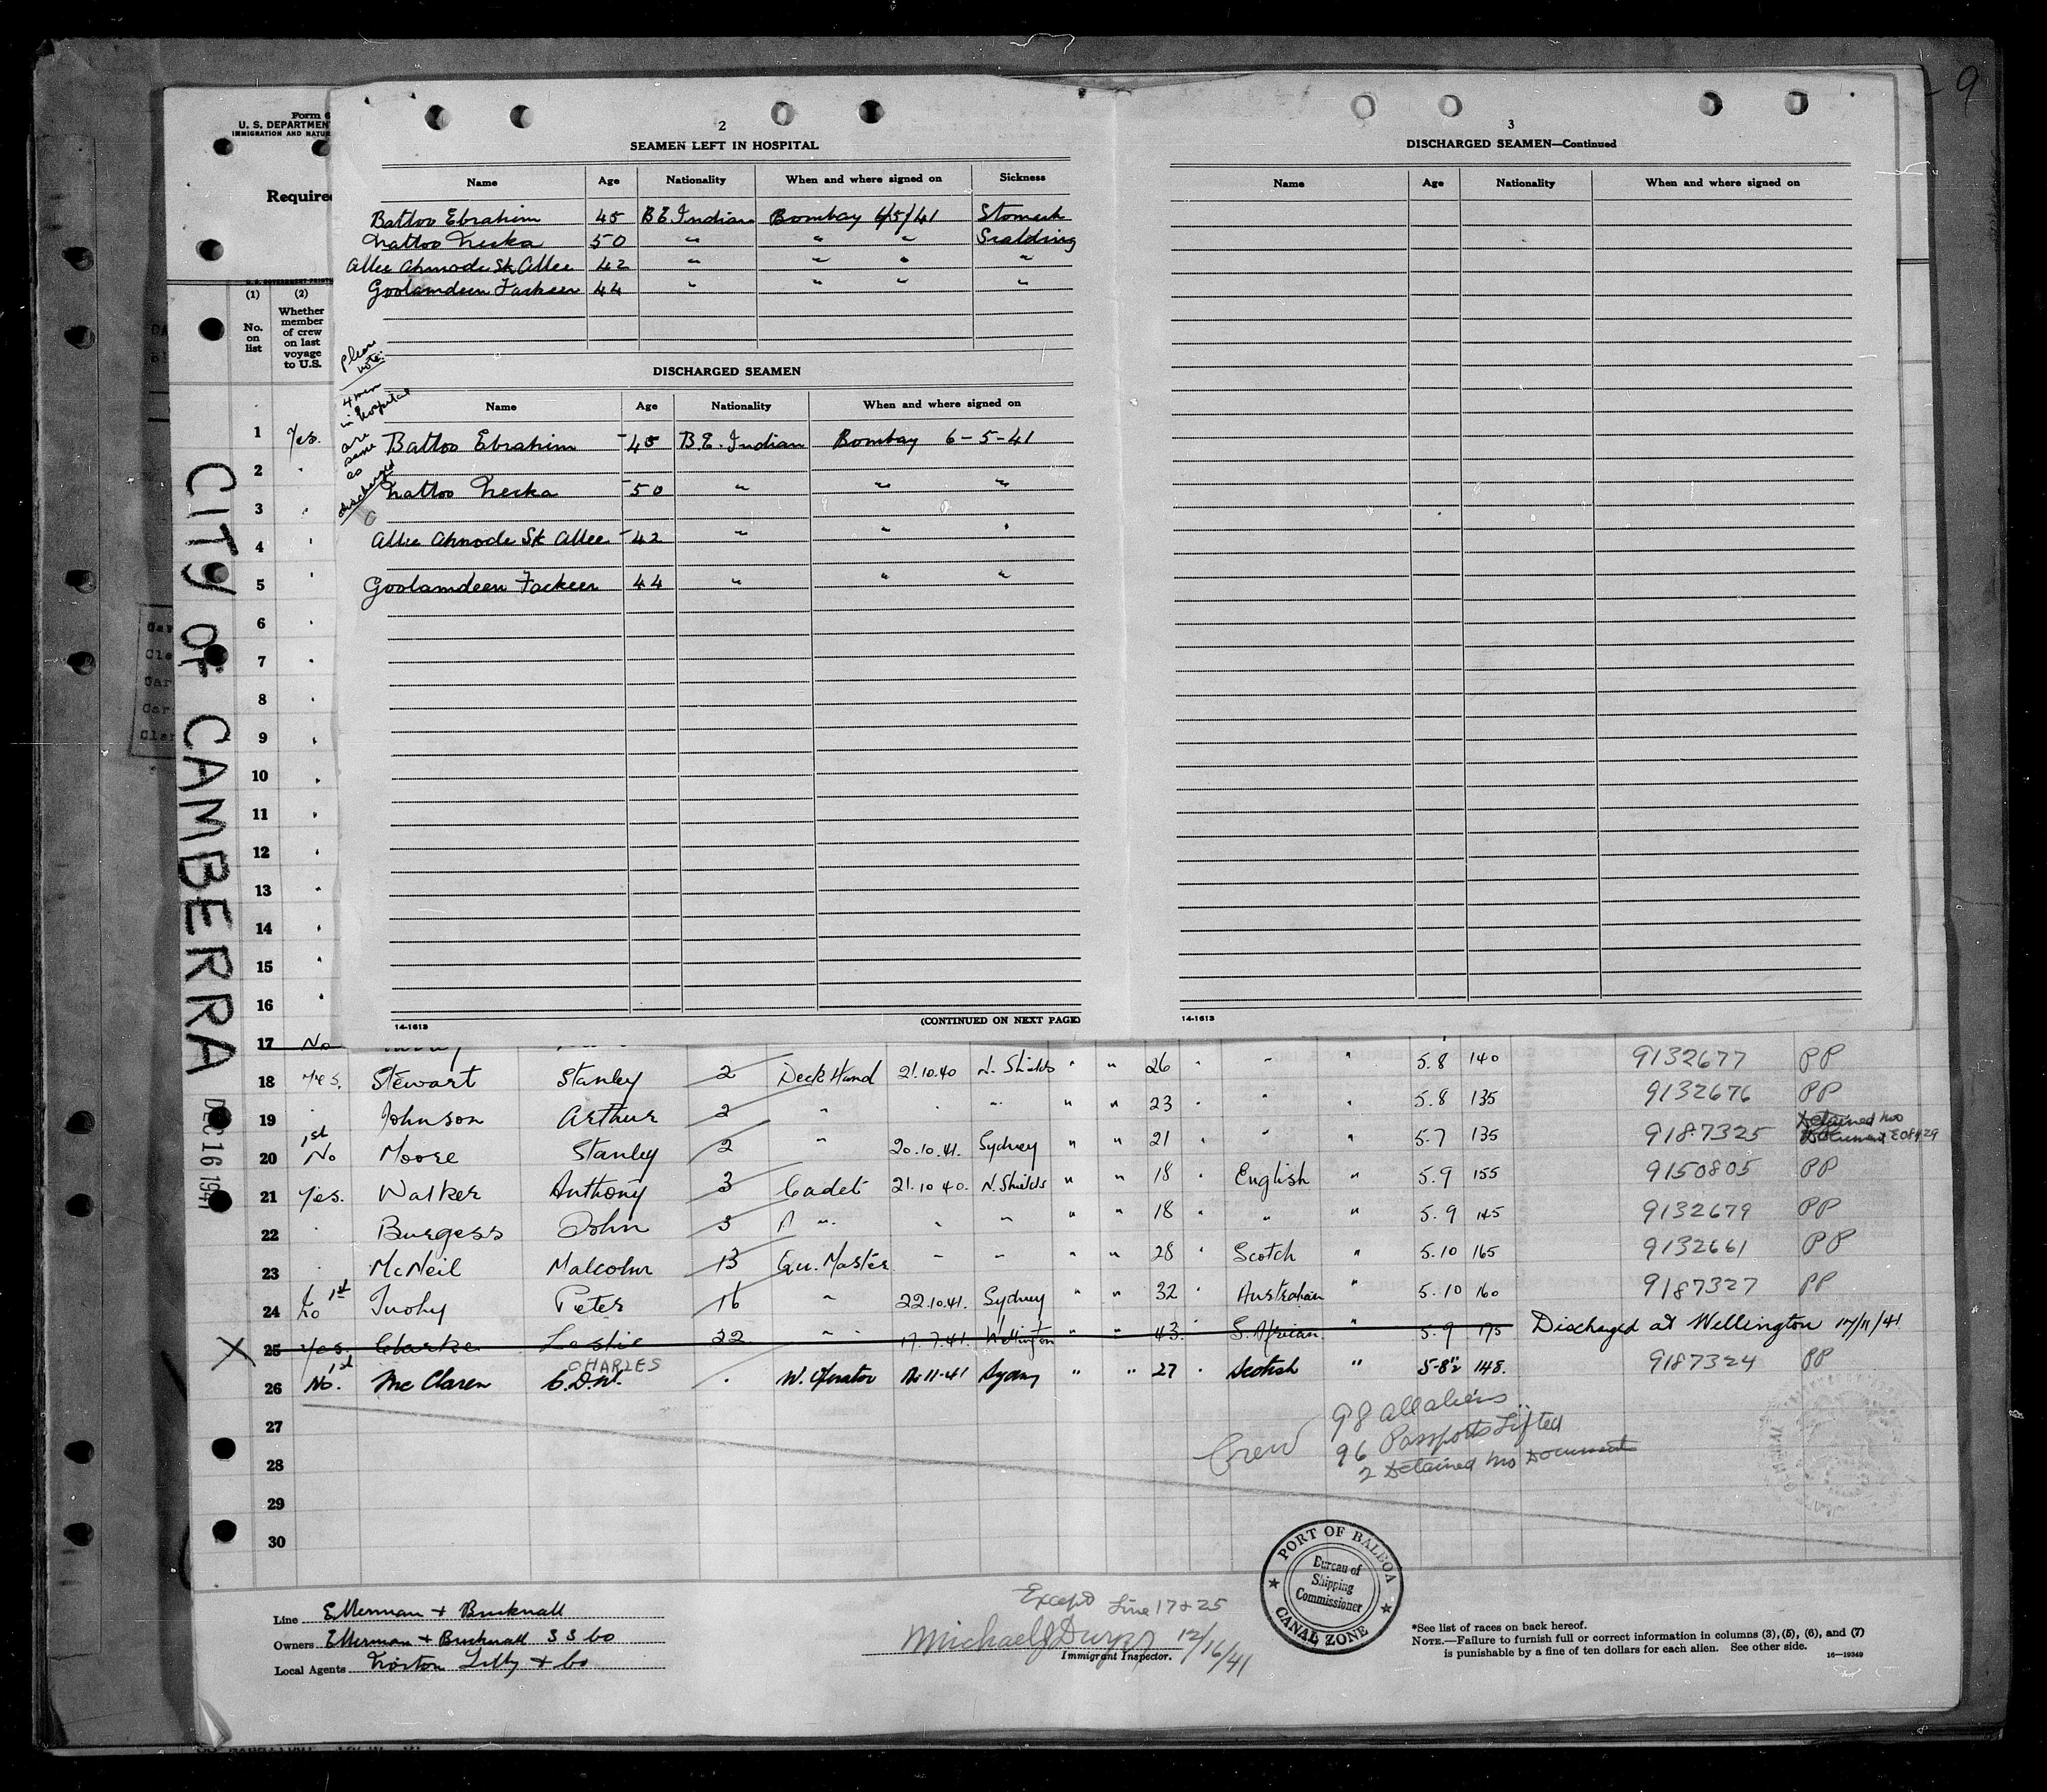 9
Form 6
U. S. DEPARTMEN
IMMIGRATION AND NATUR
Require
(1) (2)
No. on list
Whether member of crew on last voyage to U.S.
CITY OF CAMBERRA
DEC 16 194
2
SEAMEN LEFT IN HOSPITAL
Name Age Nationality When and where signed on Sickness
Battoo Ebrahim 45 B E Indian Bombay 6/5/41 Stomach
Nattoo Neska 50 " " " Scalding
Allee Ahmode Sk Allee 42 " " " "
Goolamdeen Fackeer 44 " " " "
Please note:
4 men in hospital are same as discharged
DISCHARGED SEAMEN
Name Age Nationality When and where signed on
Battoo Ebrahim 45 B.E. Indian Bombay 6-5-41
Nattoo Neska 50 " " "
Allee Ahmode Sk Allee 42 " " "
Goolamdeen Fackeer 44 " " "
14-1613 (CONTINUED ON NEXT PAGE)
3
DISCHARGED SEAMEN—Continued
Name Age Nationality When and where signed on
14-1613
1 Yes.
2 "
3 "
4 "
5 "
6 "
7 "
8 "
9 "
10 "
11 "
12 "
13 "
14 "
15 "
16 "
17 No
18 Yes. Stewart Stanley 2 Deck Hand 21.10.40 N. Shields " " 26 " " " 5.8 140 9132677 PP
19 " Johnson Arthur 2 " " " " " 23 " " " 5.8 135 9132676 PP
20 1st No Moore Stanley 2 " 20.10.41. Sydney " " 21 " " " 5.7 135 9187325 Detained no Document
21 Yes. Walker Anthony 3 Cadet 21.10.40. N. Shields " " 18 " English " 5.9 155 9150805 PP
22 " Burgess John 3 " " " " " 18 " " " 5.9 145 9132679 PP
23 " McNeil Malcolm 13 Qu. Master " " " " 28 " Scotch " 5.10 165 9132661 PP
24 1st No Tuohy Peter 16 " 22.10.41. Sydney " " 32 " Australian " 5.10 160 9187327 PP
X 25 Yes. Clarke Leslie 22 " 17.7.41. Wellington " " 43 " S. African " 5.9 175 Discharged at Wellington 17/11/41
26 1st No. McClaren C.D.W. CHARLES " W. Operator 11-41 Sydney " " 27 " Scotish " 5-8½ 148. 9187324 PP
27
28
29
30
Crew
98 all aliens
96 Passports Lifted
2 Detained no Document
PORT OF BALBOA
Bureau of Shipping Commissioner
CANAL ZONE
Line Ellerman & Bucknall
Owners Ellerman & Bucknall S S Co
Local Agents Norton Lilly & Co
Except Line 17 & 25
12/16/41
Immigrant Inspector.
*See list of races on back hereof.
NOTE.—Failure to furnish full or correct information in columns (3), (5), (6), and (7)
is punishable by a fine of ten dollars for each alien. See other side.
16—19349